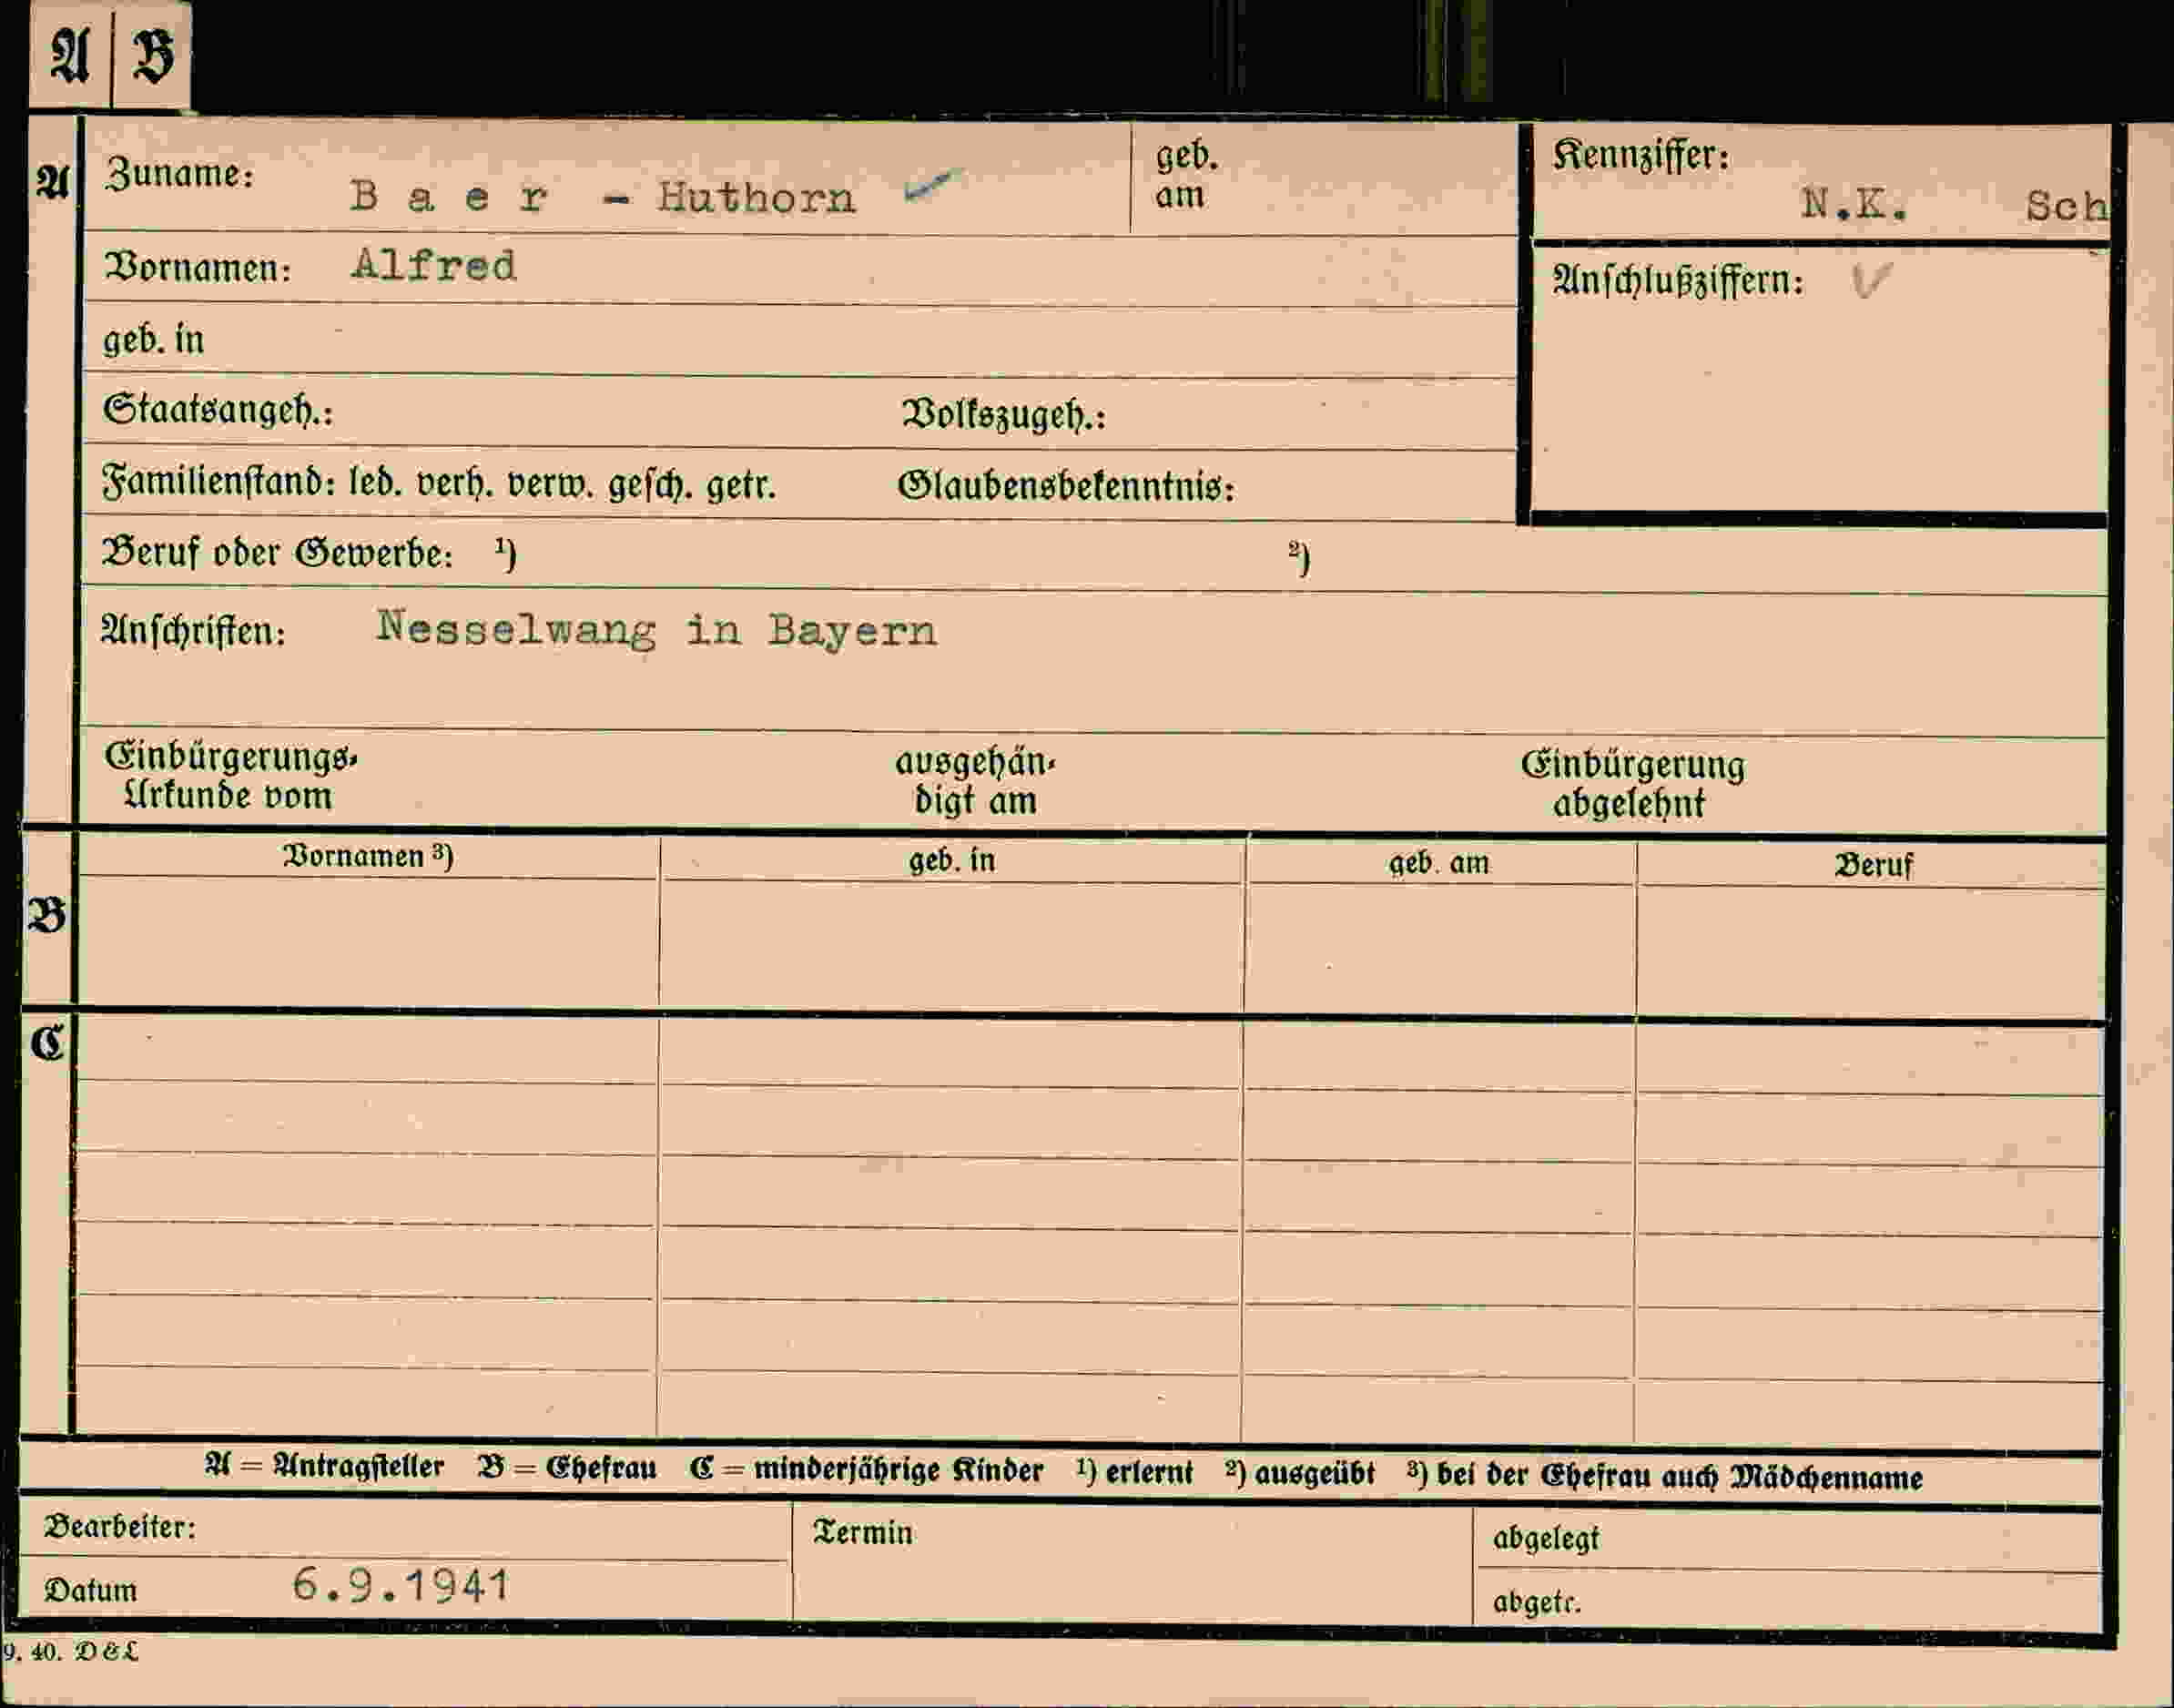 A B
A Zuname: B a e r - Huthorn geb. am
Kennziffer: N.K. Sch
Vornamen: Alfred
Anschlußziffern:
geb. in
Staatsangeh.: Volkszugeh.:
Familienstand: led. verh. verw. gesch. getr. Glaubensbekenntnis:
Beruf oder Gewerbe: ¹) ²)
Anschriften: Nesselwang in Bayern
Einbürgerungs-
Urkunde vom
ausgehän-
digt am
Einbürgerung
abgelehnt
Vornamen ³) geb. in geb. am Beruf
B
C
A = Antragsteller B = Ehefrau C = minderjährige Kinder ¹) erlernt ²) ausgeübt ³) bei der Ehefrau auch Mädchenname
Bearbeiter: Termin abgelegt
Datum 6.9.1941 abgetr.
9. 40. D & L